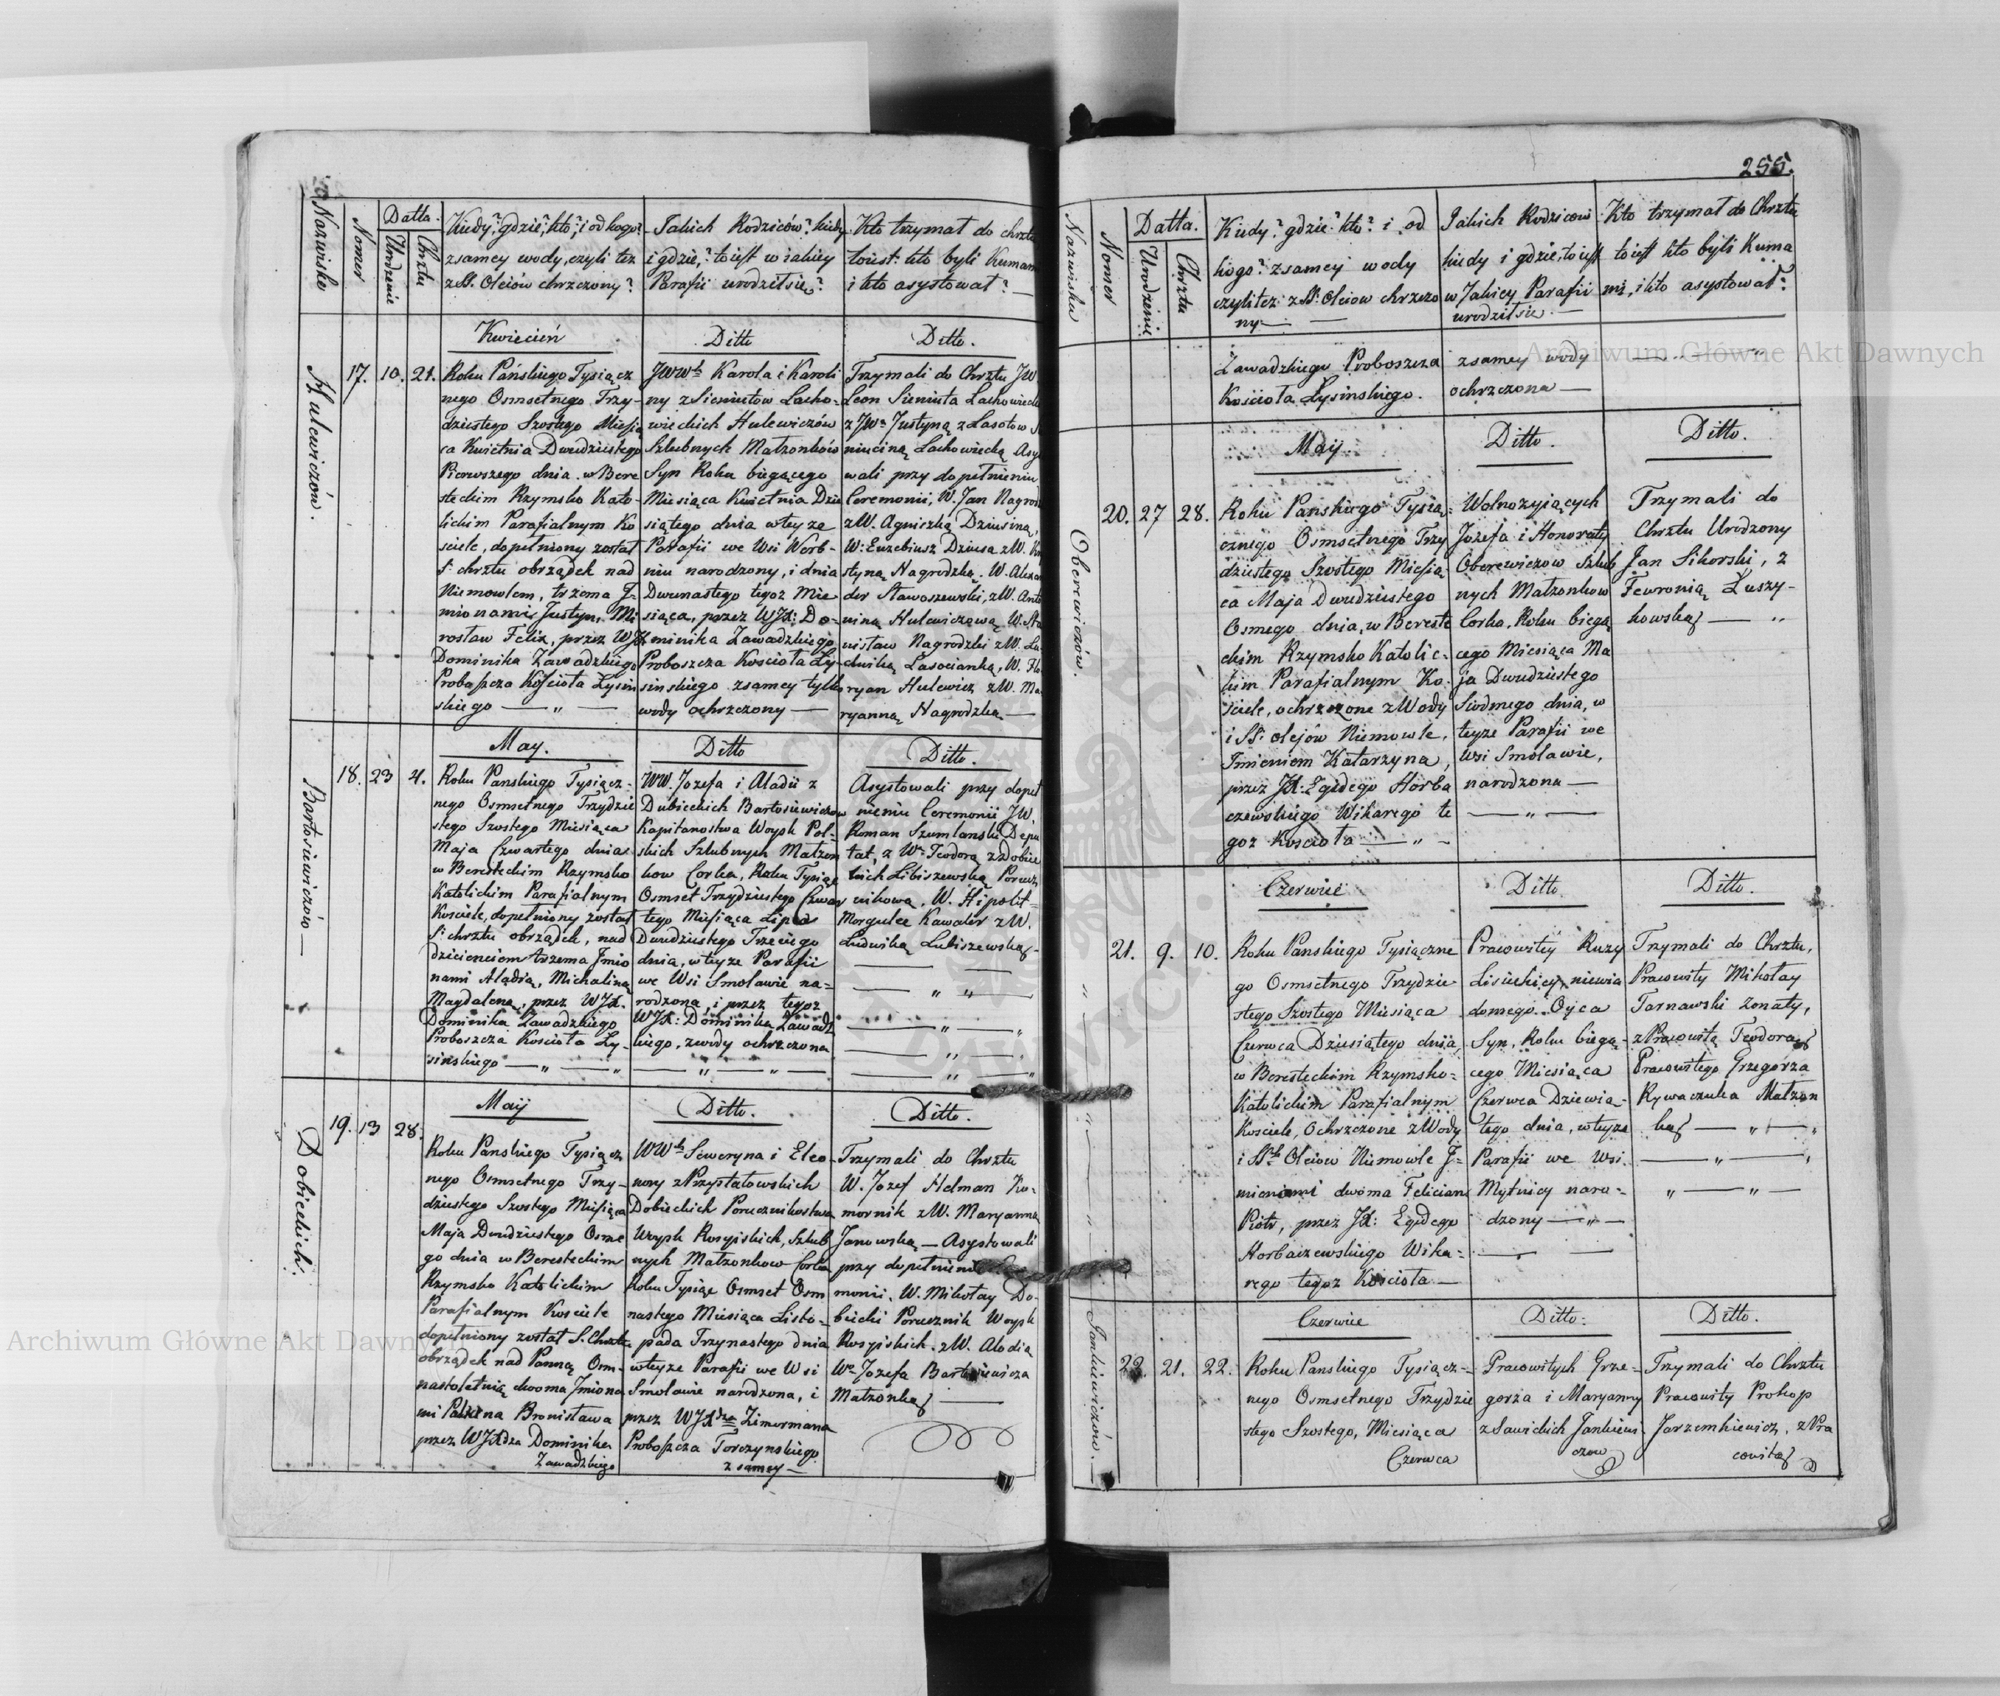 255.
Nazwisko
Numer
Datta.
Urodzenie
Chrztu
Kiedy? gdzie? kto? i od kogo?
z samey wody, czyli tez
z SS. Oleiów chrzczony?
Jakich Rodziców? kiedy
i gdzie? to iest w iakiey
Parafii urodził się?
Kto trzymał do chrztu
to iest: kto byli Kumami
i kto asystował?
Hulewiczów.
17. 10. 21.
Kwiecień
Roku Pańskiego Tysiącz
nego Osmsetnego Trzy-
dziestego Szostego Miesią
ca Kwietnia Dwudziestego
Pierwszego dnia w Bere
steckim Rzymsko Kato-
lickim Parafialnym Ko
sciele, dopełniony został
S. chrztu obrządek nad
Niemowlem, trzema J-
mionami Justyn, Mi
rosław Felix, przez WJX
Dominika Zawadzkiego
Proboszcza Kościoła Łysin
skiego — „ —
Ditto
JWWch Karola i Karoli
ny z Sieniutow Lacho-
wieckich Hulewiczów
Szlubnych Małzonków
Syn Roku biegącego
Miesiąca Kwietnia Dzie
siątego dnia w teyze
Parafii we Wsi Werb-
niu narodzony, i dnia
Dwunastego tegoz Mie
siąca, przez WJX: Do-
minika Zawadzkiego
Proboszcza Kościoła Ły-
sinskiego z samey tylko
wody ochrzczony —
Ditto.
Trzymali do Chrztu JW
Leon Sieniuta Lachowiecki
z JWą Justyną z Lasotow
niuciną Lachowiecką Asy
wali przy dopełnieniu
Ceremonii, W. Jan Nagro
z W. Agnieszką Dziusiną,
W: Euzebiusz Dziusa z W.
styną Nagrodzką. W. Alexan
der Stawoszewski, z W. Anto
niną Hulewiczową, W. Sta
nisław Nagrodzki z W. Lu
dwiką Lasocianką, W. Flo
ryan Hulewicz z W. Ma
ryanną Nagrodzką —
Bartosiewiczów —
18. 23 4.
May.
Roku Panskiego Tysiącz-
nego Osmsetnego Trzydzie
stego Szostego Miesiąca
Maja Czwartego dnia
w Beresteckim Rzymsko
Katolickim Parafialnym
Kosciele, dopełniony został
S. chrztu obrządek, nad
dziecieciem trzema Jmio
nami Aladia, Michalina
Magdalena, przez WJX.
Dominika Zawadzkiego
Proboszcza Kosciola Ły-
sinskiego — „ — „
Ditto
WW. Jozefa i Aladii z
Dubieckich Bartosiewiczow
Kapitanostwa Woysk Pol-
skich Szlubnych Małzon
kow Corka, Roku Tysiąc
Osmset Trzydziestego Czwar
tego Miesiąca Lipca
Dwudziestego Trzeciego
dnia, w teyze Parafii
we Wsi Smolawie na-
rodzona, i przez tegoz
WJX: Dominika Zawadz
kiego, z wody ochrzczona
— „ — „ —
Ditto.
Asystowali przy dopeł
nieniu Ceremonii JW.
Roman Szumlanski Depu
tat, z Wą Teodorą z Dobie
ckich Libiszewską Porucz
nikową, W. Hipolit
Morgulec Kawaler z W.
Ludwiką Lubiszewską
Dobieckich.
19. 13 28.
Maij
Roku Panskiego Tysiącz
nego Osmsetnego Trzy-
dziestego Szostego Miesiąca
Maja Dwudziestego Osme
go dnia w Beresteckim
Rzymsko Katolickim
Parafialnym Kosciele
dopełniony został S. Chrztu
obrządek nad Panną Osm-
nastoletnią dwoma Jmiona
mi Paulina Bronisława
przez WJXdza Dominika
Zawadzkiego
Ditto.
WWch Seweryna i Eleo-
nory z Przystałowskich
Dobieckich Porucznikostwa
Woysk Rosyiskich, Szlub
nych Małzonkow Corka
Roku Tysiąc Osmset Osm
nastego Miesiąca Listo-
pada Trzynastego dnia
w teyze Parafii we Wsi
Smolawie narodzona, i
przez WJXdza Zimermana
Proboszcza Torczynskiego
z samey —
Ditto.
Trzymali do Chrztu
W. Jozef Helman Ko-
mornik z W. Maryanną
Janowską — Asystowali
przy dopełnieniu
monii. W. Mikołay Do-
biecki Porucznik Woysk
Rosyiskich z W. Alodią
Wo Jozefa Bartosiewicza
Małzonką —
Nazwisko
Numer
Datta.
Urodzenie
Chrztu
Kiedy? gdzie? kto? i od
kogo? z samey wody
czyli tez z SS: Oleiow chrzczo
ny —
Jakich Rodzicow
kiedy i gdzie, to iest
w Jakiey Parafii
urodził się —
Kto trzymał do Chrztu
to iest kto byli Kuma
mi, i kto asystował?
Zawadzkiego Proboszcza
Kościoła Łysinskiego.
z samey wody
ochrzczona —
Oberewiczów.
20. 27 28.
May
Roku Panskiego Tysią-
cznego Osmsetnego Trzy
dziestego Szostego Miesią
ca Maja Dwudziestego
Osmego dnia, w Bereste
ckim Rzymsko Katolic-
kim Parafialnym Ko-
sciele, ochrzczone z Wody
i SS: olejów Niemowle,
Jmieniem Katarzyna,
przez JX: Egidego Horba
czewskiego Wikarego te
goz Kosciola — „ —
Ditto.
Wolnozyiących
Jozefa i Honoraty
Oberewiczow Szlub
nych Małzonkow
Corka, Roku biegą
cego Miesiąca Ma
ja Dwudziestego
Siodmego dnia, w
teyze Parafii we
Wsi Smolawie,
narodzona —
— „ —
Ditto.
Trzymali do
Chrztu Urodzony
Jan Sikorski, z
Fewronią Łuszy-
kowską — „
21. 9. 10.
Czerwiec
Roku Panskiego Tysiączne
go Osmsetnego Trzydzie
stego Szostego Miesiąca
Czerwca Dziesiątego dnia,
w Beresteckim Rzymsko-
Katolickim Parafialnym
Kosciele, Ochrzczone z Wody
i SSch Oleiow Niemowle J-
mionami dwoma Felician
Piotr, przez JX: Egidego
Horbaczewskiego Wika-
rego tegoz Kościoła —
Ditto.
Pracowitey Ruzy
Lisieckiey, niewia
domego Oyca
Syn, Roku biegą-
cego Miesiąca
Czerwca Dziewią-
tego dnia, w teyze
Parafii we Wsi
Mytnicy naro-
dzony — „ —
Ditto.
Trzymali do Chrztu,
Pracowity Mikołay
Tarnawski zonaty,
z Pracowitą Teodorą
Pracowitego Grzegorza
Rywaczuka Małzon
ką — „ —
Jankiewiczów. —
22. 21. 22.
Czerwiec
Roku Panskiego Tysiącz-
nego Osmsetnego Trzydzie
stego Szostego, Miesiąca
Czerwca
Ditto:
Pracowitych Grze-
gorza i Maryanny
z Sawickich Jankiewi
czow
Ditto.
Trzymali do Chrztu
Pracowity Prokop
Jarzemkiewicz, z Pra
cowitą
Archiwum Główne Akt Dawnych
Archiwum Główne Akt Dawnych